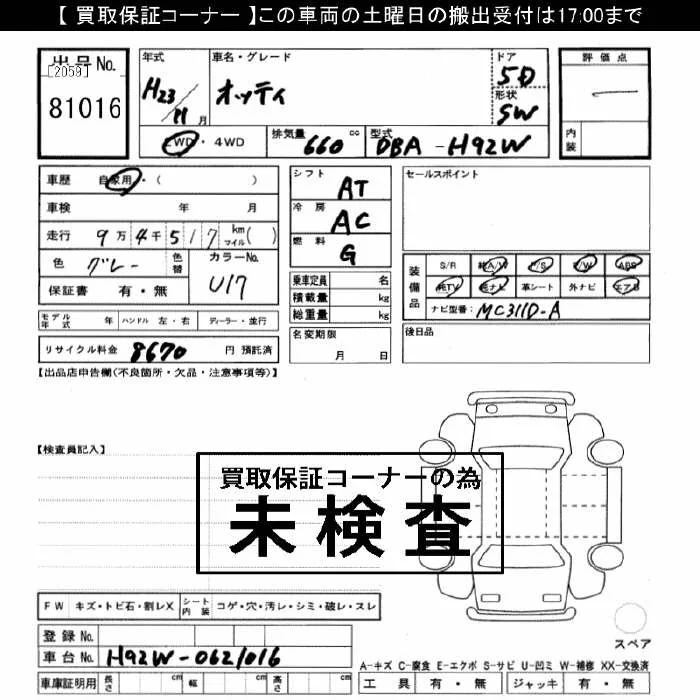 【 買取保証コーナー 】この車両の土曜日の搬出受付は17:00まで
出品No.
[2059]
81016
年式 H23/11月
車名・グレード オッティ
ドア 5D
形状 SW
評価点
内装
2WD・4WD
排気量 660 cc
型式 DBA-H92W
車歴 自家用・( )
車検 年 月
走行 9万4千517 km マイル( )
色 グレー 色替
カラーNo. U17
保証書 有・無
シフト AT
冷房 AC
燃料 G
乗車定員 名
積載量 kg
総重量 kg
セールスポイント
装備品
S/R 純A/W P/S P/W ABS
純TV 純ナビ 革シート 外ナビ エアB
ナビ型番: MC311D-A
モデル年式 年 ハンドル 左・右 ディーラー・並行
名変期限 月 日
後日品
リサイクル料金 8670 円 預託済
【出品店申告欄(不良箇所・欠品・注意事項等)】
【検査員記入】
買取保証コーナーの為
未検査
FW キズ・トビ石・割レX シート内装 コゲ・穴・汚レ・シミ・破レ・スレ
登録No.
車台No. H92W-062/016
車庫証明用 長さ cm 幅 cm 高さ cm
スペア
A-キズ C-腐食 E-エクボ S-サビ U-凹ミ W-補修 XX-交換済
工具 有・無 ジャッキ 有・無